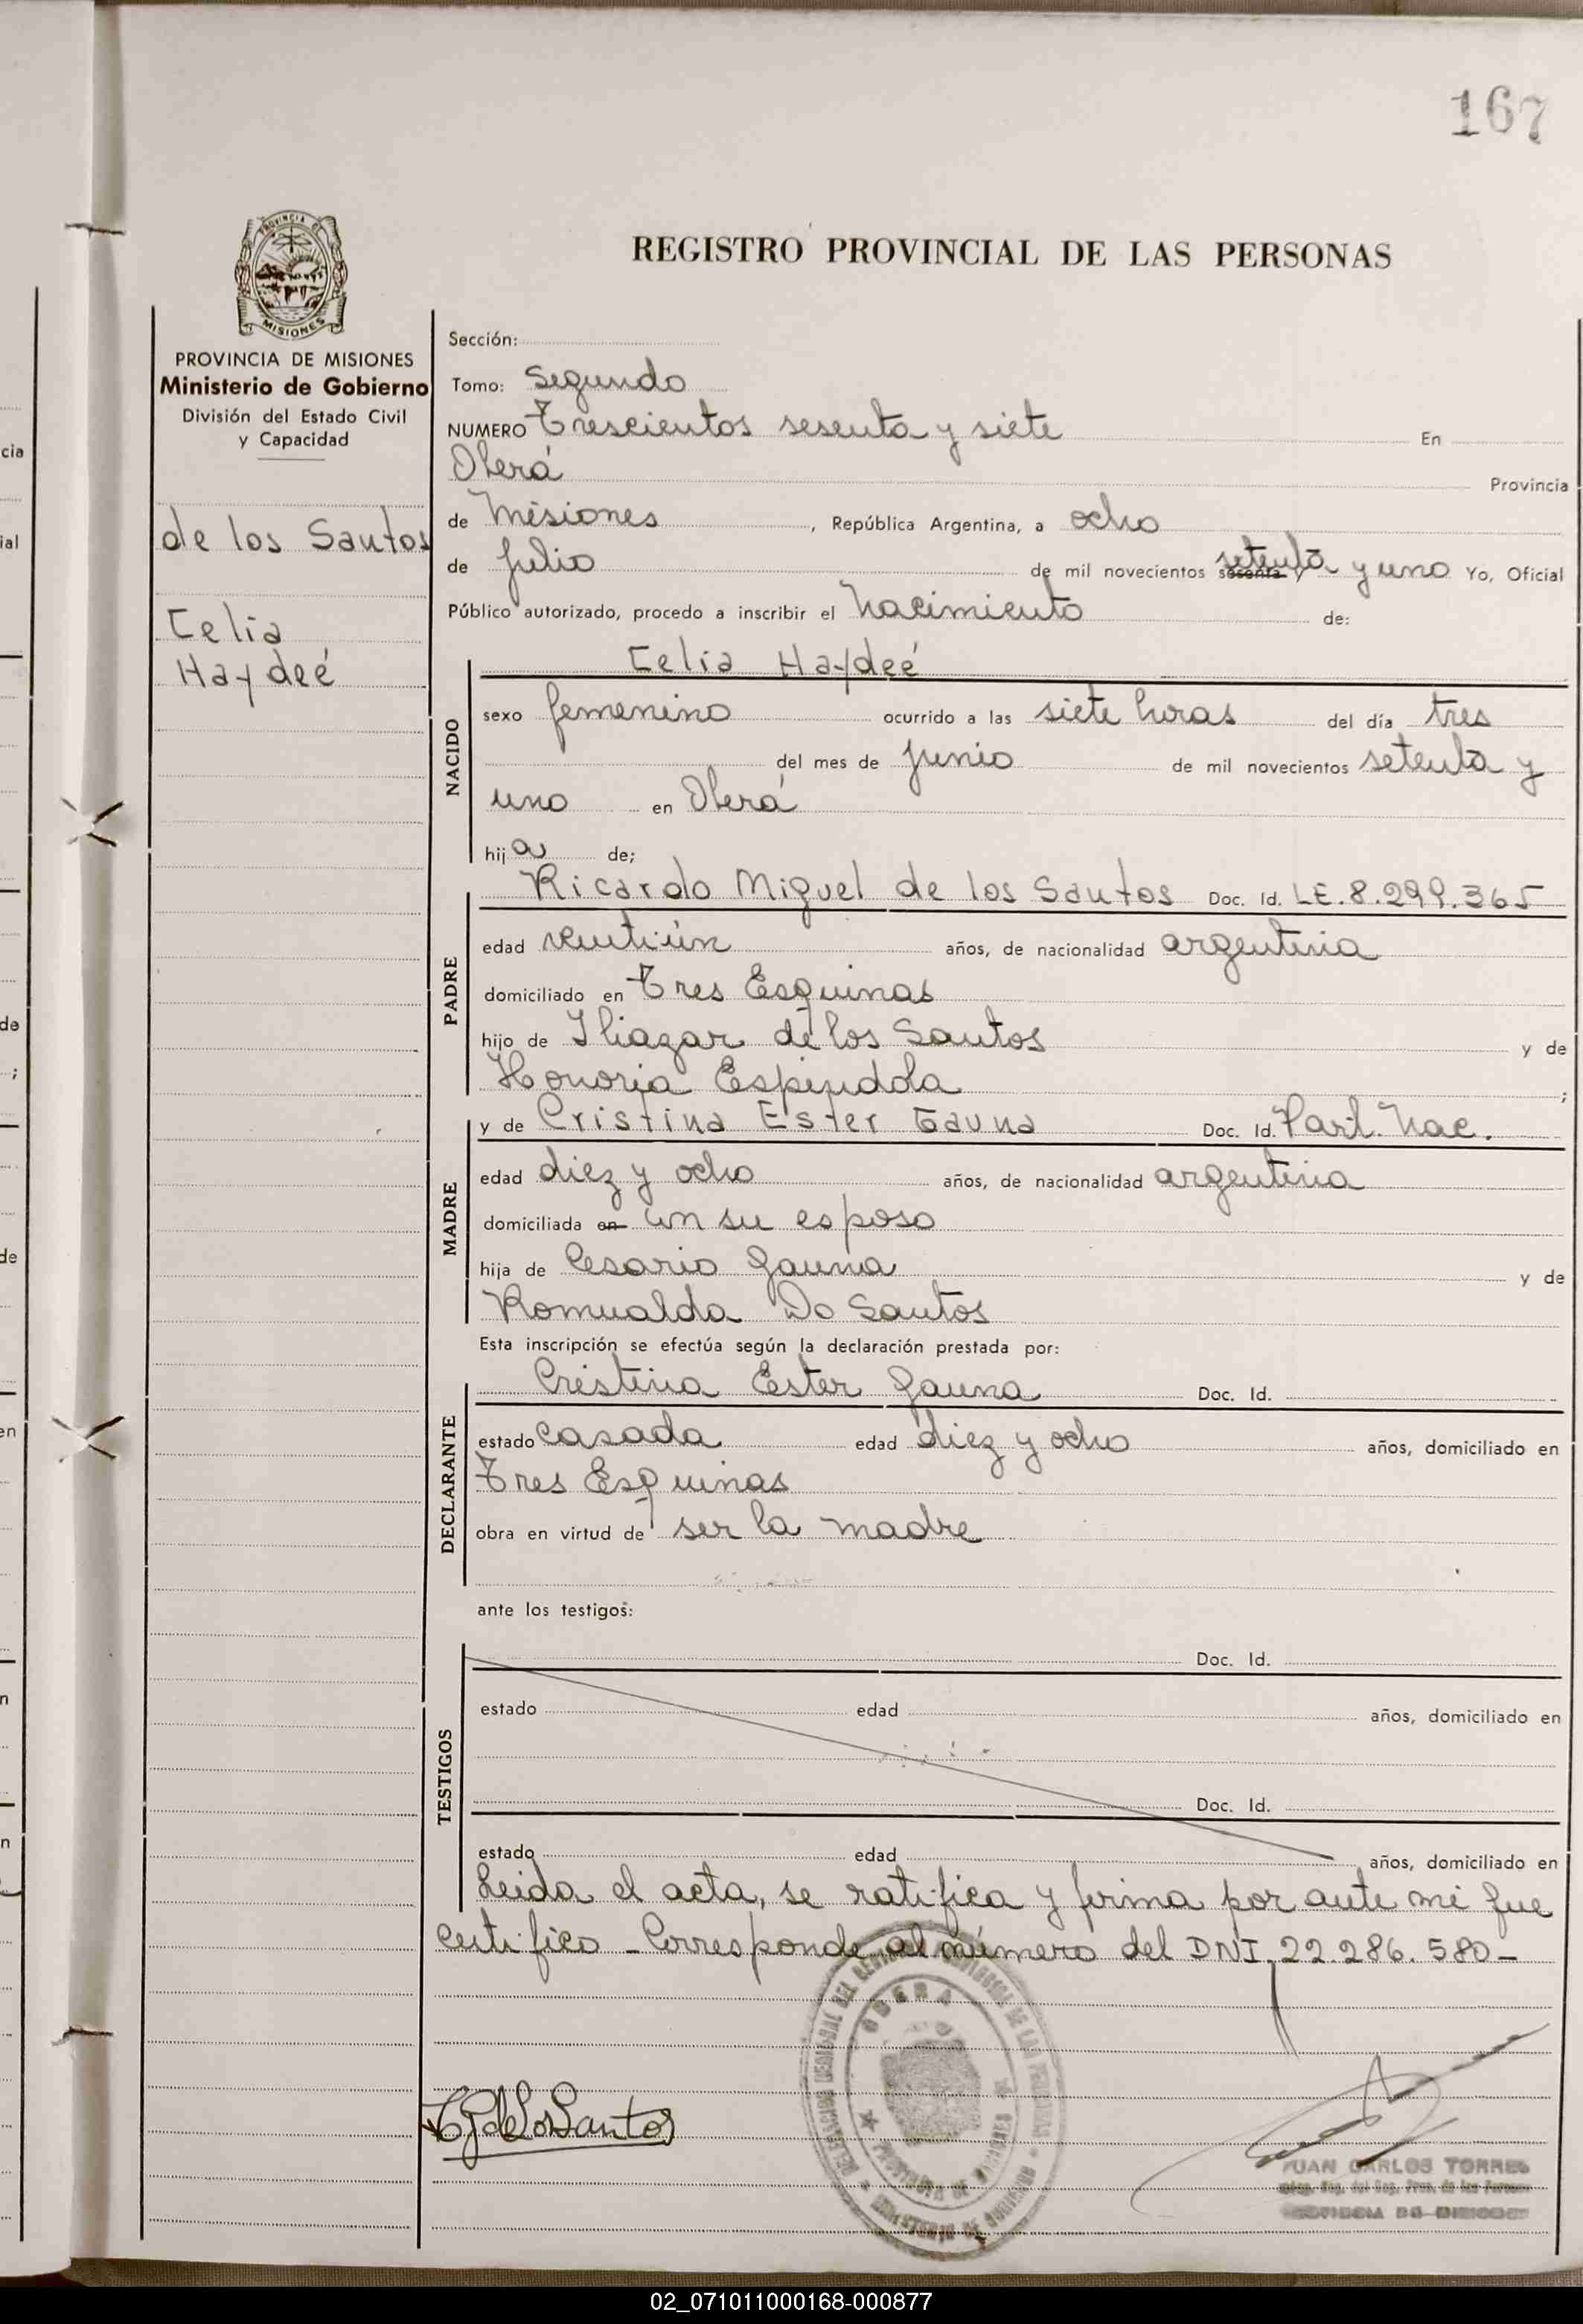 167
PROVINCIA DE
MISIONES
PROVINCIA DE MISIONES
Ministerio de Gobierno
División del Estado Civil
y Capacidad
de los Santos
Celia
Haydeé
REGISTRO PROVINCIAL DE LAS PERSONAS
Sección:
Tomo: Segundo
NUMERO Trescientos sesenta y siete En
Oberá Provincia
de Misiones, República Argentina, a ocho
de julio de mil novecientos sesenta y setenta y uno Yo, Oficial
Público autorizado, procedo a inscribir el Nacimiento de:
NACIDO
Celia Haydeé
sexo femenino ocurrido a las siete horas del día tres
del mes de junio de mil novecientos setenta y
uno en Oberá
hija de;
PADRE
Ricardo Miguel de los Santos Doc. Id. LE.8.299.365
edad veintiún años, de nacionalidad argentina
domiciliado en Tres Esquinas
hijo de de los Santos y de
Honoria Espindola ;
MADRE
y de Cristina Ester Gauna Doc. Id. Part. Nac.
edad diez y ocho años, de nacionalidad argentina
domiciliada en con su esposo
hija de Cesario Gauna y de
Romualda Do Santos
Esta inscripción se efectúa según la declaración prestada por:
DECLARANTE
Cristina Ester Gauna Doc. Id.
estado casada edad diez y ocho años, domiciliado en
Tres Esquinas
obra en virtud de ser la madre
ante los testigos:
TESTIGOS
Doc. Id.
estado edad años, domiciliado en
Doc. Id.
estado edad años, domiciliado en
Leida el acta, se ratifica y firma por ante mi que
certifico - Corresponde al número del DNI 22.286.580-
OBERA
de Los Santos
JUAN CARLOS TORRES
PROVINCIA DE MISIONES
02_071011000168-000877